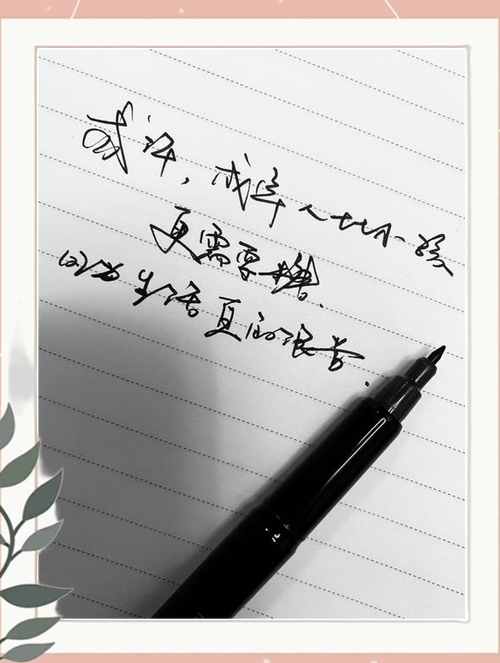 或许,成年人比小孩
更需要糖.
因为生活真的很苦.